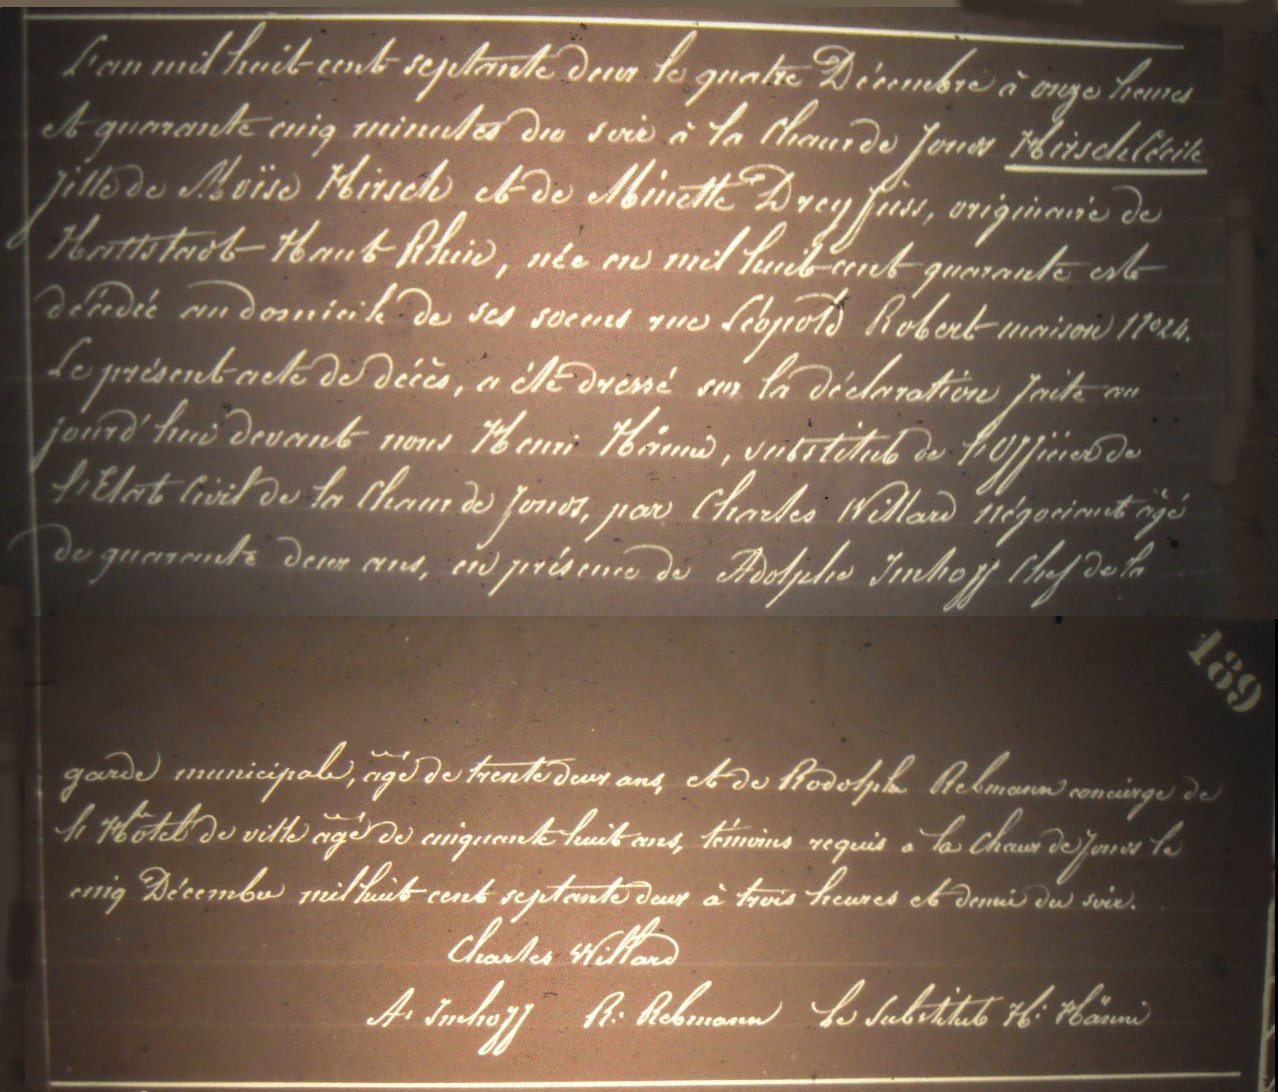 L'an mil huit cent septante deux le quatre Décembre à onze heures
et quarante cinq minutes du soir à la Chaux de Fonds Hirsch Cécile
fille de Moïse Hirsch et de Minette Dreyfuss, originaire de
Hattstadt Haut Rhin, née en mil huit cent quarante est
décédée au domicile de ses soeurs rue Léopold Robert maison No 24.
Le présent acte de décès, a été dressé sur la déclaration faite au
jourd'hui devant nous Henri Hänni, substitut de l'Officier de
l'Etat Civil de la Chaux de Fonds, par Charles Willard négociant âgé
de quarante deux ans, en présence de Adolphe Imhoff Chef de la
189
garde municipale, âgé de trente deux ans, et de Rodolphe Rebmann concierge de
l'Hôtel de ville âgé de cinquante huit ans, témoins requis à la Chaux de Fonds le
cinq Décembre mil huit cent septante deux à trois heures et demie du soir.
Charles Willard
A. Imhoff R. Rebmann Le Substitut H. Hänni